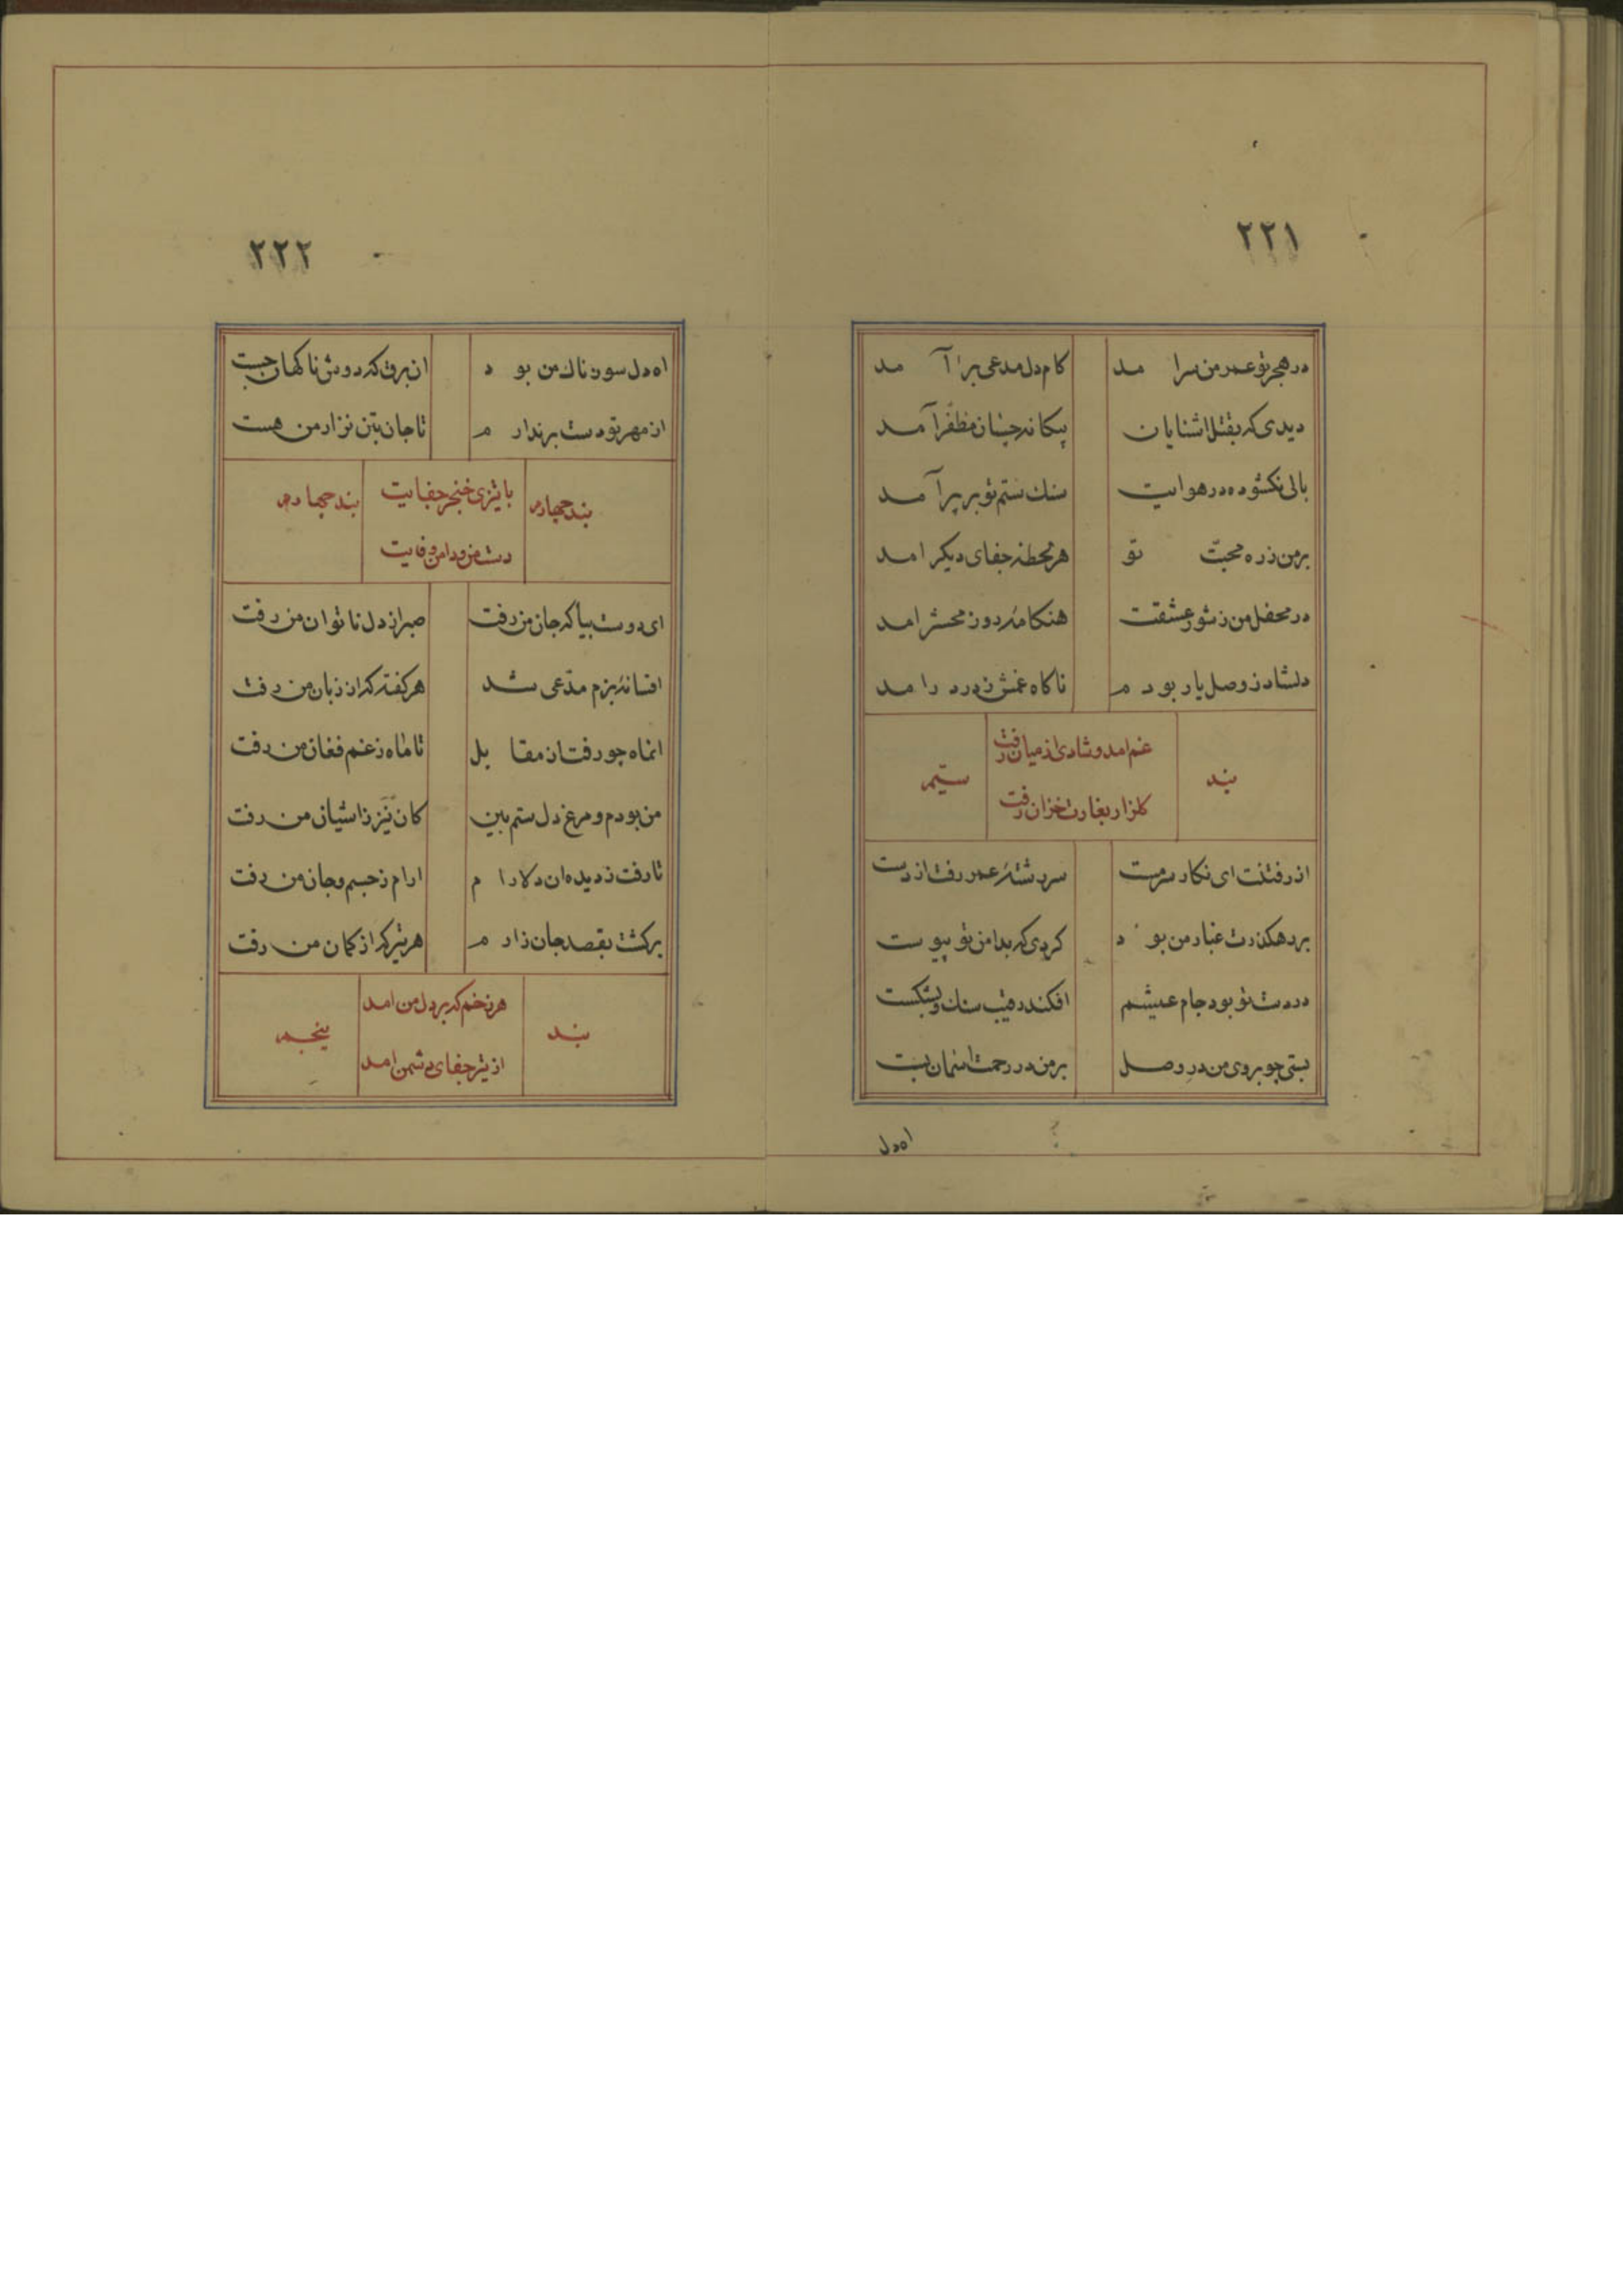 ۲۲۱
در هجر تو عمر من سرا مد کام دل مدعی بر آ مد
دیدی که بقتل اشنایان بیکانه چسان مظفر آمد
بالی نکشوده در هوایت سنک ستم تو بر پر آمد
بر من ز ره محبت تو هر لحظه جفای دیکر امد
در محفل من ز شور عشقت هنکامهٔ روز محشر امد
دلشاد ز وصل یار بودم ناکاه غمش ز در در امد
بند غم امد و شادی از میان رفت سیّم
کلزار بغارت خزان رفت
از رفتنت ای نکار سرمست سر رشتهٔ عمر رفت از دست
بر رهکذرت غبار من بود کردی که بدامن تو پیوست
در دست تو بود جام عیشم افکند رقیب سنک و بشکست
بستی چو بروی من در وصل بر من در رحمت اسمان بست
اه دل
۲۲۲
اه دل سوزناک من بود ان برق که دوش ناکهان جست
از مهر تو دست برندارم تا جان بتن نزار من هست
بند چهارم با تیزی خنجر جفایت بند چهارم
دست من و دامن وفایت
ای دوست بیا که جان من رفت صبر از دل ناتوان من رفت
افسانهٔ بزم مدّعی شد هر کفته که از زبان من رفت
انماه چو رفت از مقابل تا ماه ز غم فغان من رفت
من بودم و مرغ دل ستم بین کان نیز ز اشیان من رفت
تا رفت ز دیده ان دلارام ارام ز جسم و جان من رفت
برکشت بقصد جان زارم هر تیر که از کمان من رفت
بند هر زخم که بر دل من امد پنجم
از تیر جفای دشمن امد